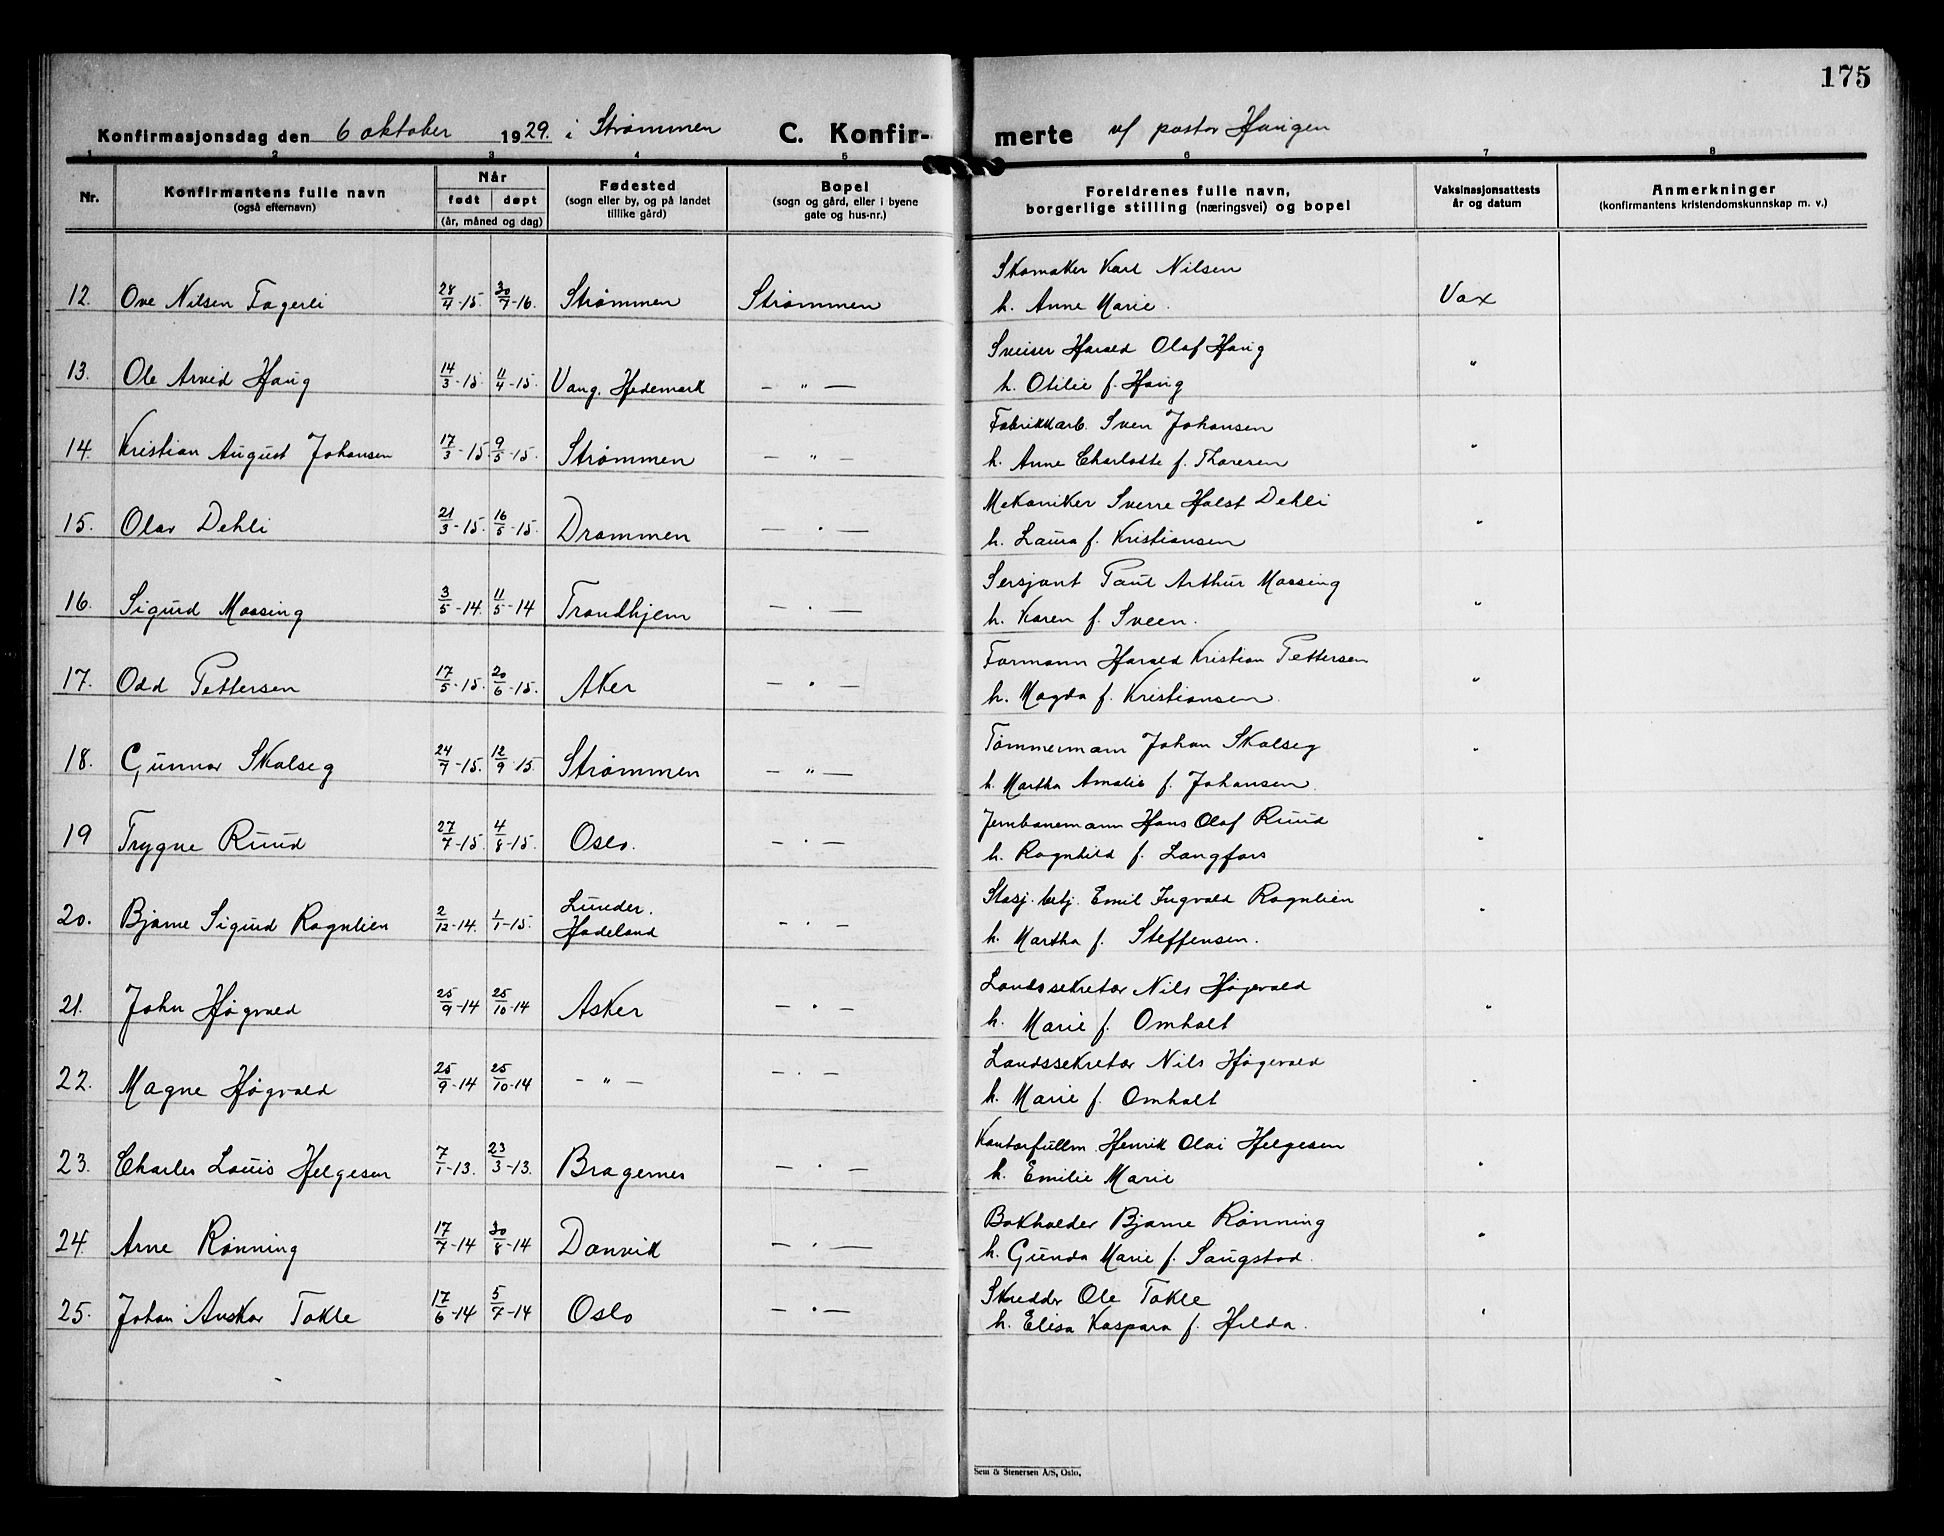 175
Konfirmasjonsdag den 6 oktober 1929. i Strømmen C. Konfir- merte v/ pastor Haugen
1 2 3 4 5 6 7 8
Nr. Konfirmantens fulle navn (også efternavn) Når født døpt (år, måned og dag) Fødested (sogn eller by, og på landet tillike gård) Bopel (sogn og gård, eller i byene gate og hus-nr.) Foreldrenes fulle navn, borgerlige stilling (næringsvei) og bopel Vaksinasjonsattests år og datum Anmerkninger (konfirmantens kristendomskunnskap m. v.)
Skomaker Karl Nilsen
12. Ove Nilsen Fagerli 28/4-15. 30/7-16. Strømmen Strømmen h. Anne Marie. Vax
Sveiser Harald Olaf Haug
13. Ole Arvid Haug 14/3-15. 11/4-15. Vang. Hedemark — " — h. Otilie f. Haug "
Fabrikkarb. Sven Johansen
14. Kristian August Johansen 17/3-15. 9/5-15. Strømmen — " — h. Anne Charlotte f. Thoresen "
Mekaniker Sverre Holst Dehli
15. Olav Dehli 21/3-15. 16/5-15. Drammen — " — h. Laura f. Kristiansen "
Sersjant Paul Arthur Moosing
16. Sigurd Moosing 3/5-14. 11/5-14 Trondhjem — " — h. Karen f. Sveen. "
Formann Harald Kristian Pettersen
17. Odd Pettersen 17/5-15. 20/6-15. Aker — " — h. Magda f. Kristiansen "
Tømmermann Johan Skalseg
18. Gunnar Skalseg 24/7-15. 12/9-15. Strømmen — " — h. Martha Amalie f. Johansen. "
Jernbanemann Hans Olaf Ruud
19 Trygve Ruud 27/7-15. 4/8-15. Oslo. — " — h. Ragnhild f. Langfors "
Stasj. betj. Emil Ingvald Rognlien
20. Bjarne Sigurd Rognlien 2/12-14. 1/1-15. Lunder. Hadeland — " — h. Martha f. Steffensen. "
Landssekretær Nils Høgevold
21. John Høgvold 25/9-14 25/10-14 Asker — " — h. Marie f. Omholt "
Landssekretær Nils Høgevold
22. Magne Høgvold 25/9-14 25/10-14 — " — — " — h. Marie f. Omholt "
Kontorfullm. Henrik Olai Helgesen
23. Charles Louis Helgesen 7/1-13. 23/3-13. Bragernes — " — h. Emilie Marie "
Bokholder Bjarne Rønning
24. Arne Rønning 17/7-14 30/8-14 Danvik — " — h. Gunda Marie f. Saugstad. "
Skredder Ole Takle
25. Johan Anskar Takle 17/6-14 5/7-14 Oslo — " — h. Elisa Kaspara f. Hilda. "
Sem & Stenersen A/S, Oslo.